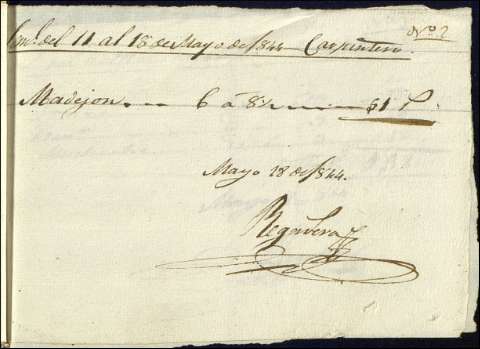 Nº 2
Semª del 11 al 18 de Mayo de 1844 Carpintero
Madejon 6 a 8½ 51 P
Mayo 18 de 1844.
Regalera